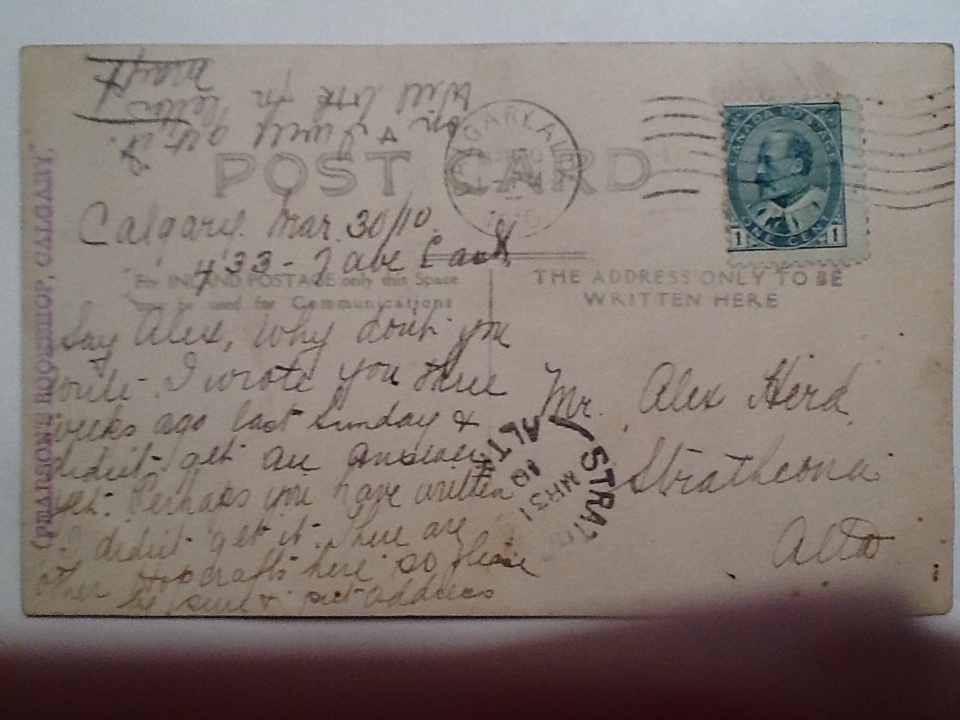 POST CARD
CALGARY, AL
1910
CANADA POSTAGE
1 ONE CENT 1
Calgary. Mar. 30/10.
433 - 7 ave East
"For INLAND POSTAGE only this Space
may be used for Communications
THE ADDRESS ONLY TO BE
WRITTEN HERE
Say Alex, Why don't you
write. I wrote you three
weeks ago last Sunday &
didn't get an answer
yet. Perhaps you have written
& I didn't get it. There are
other Hopcrafts here so please
be sure & put address
on & I will get it.
Will look for
letter
Mr. Alex Herd
Strathcona
Alta
STRATH
ALTA
MR 31
10
(PEARSON'S BOOKSHOP, CALGARY)